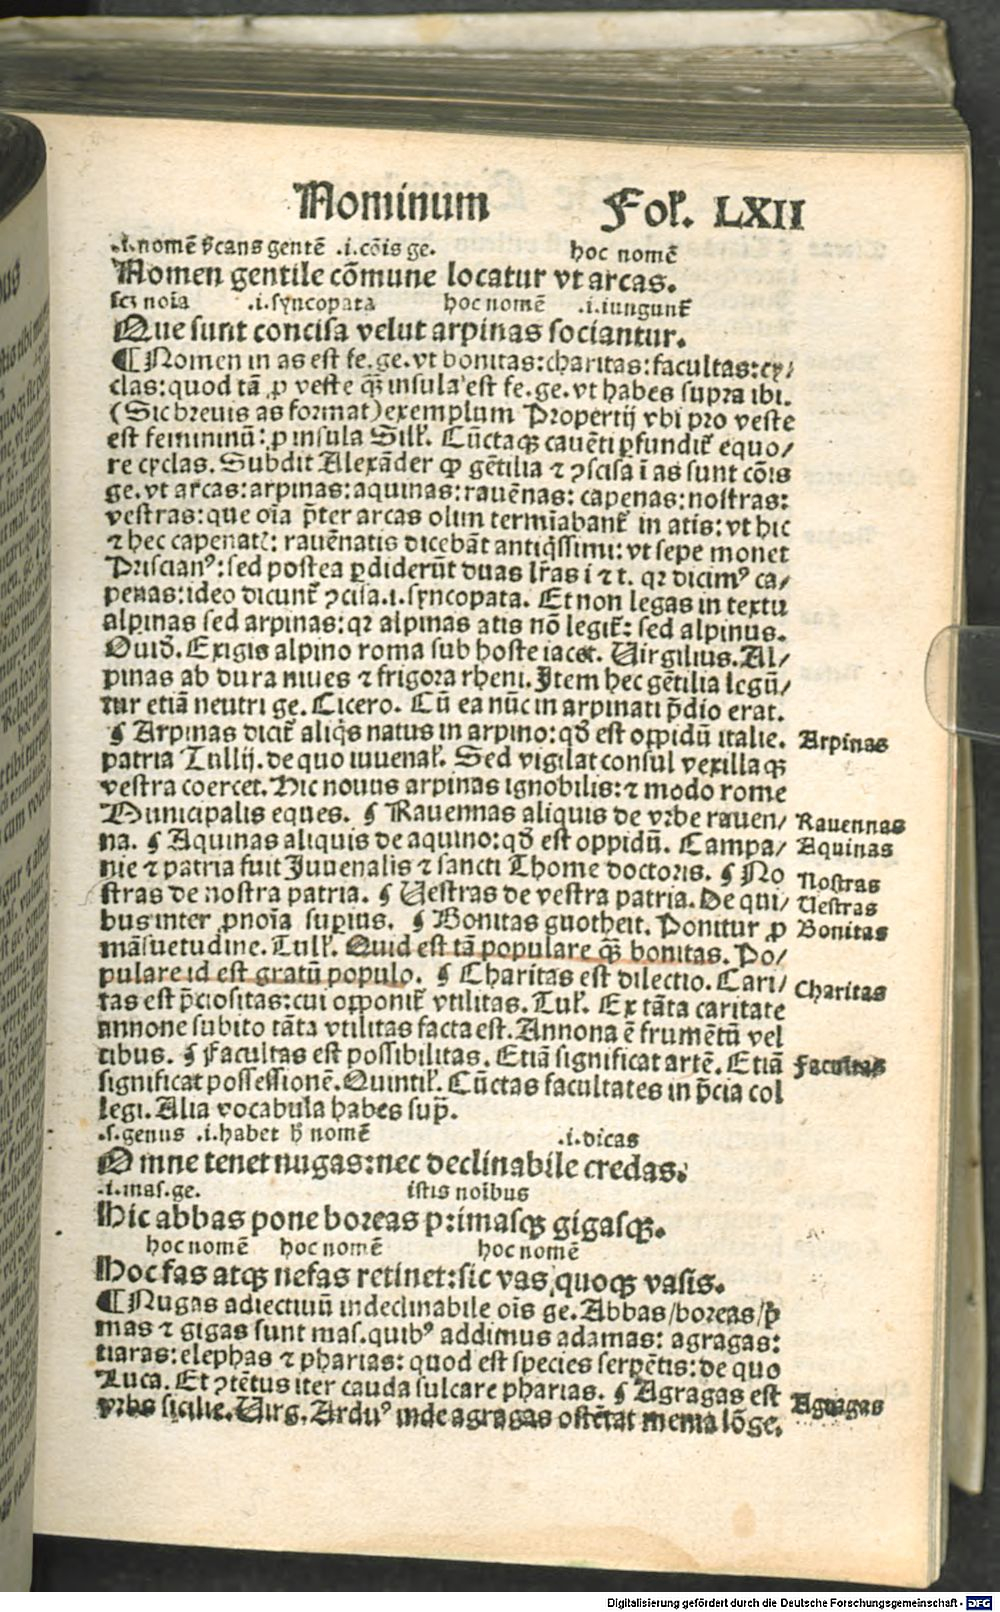 Nominum Fol. LXII
.i. nomē ſ̄cans gentē .i. cōis ge. hoc nomē
Nomen gentile cōmune locatur vt arcas.
ſcꝫ noīa .i. ſyncopata hoc nomē .i. iungunt̄
Que ſunt conciſa velut arpinas ſociantur.
¶ Nomen in as eſt fe. ge. vt bonitas: charitas: facultas: cy/
clas: quod tā ꝓ veſte q̄ꝫ inſula eſt fe. ge. vt habes ſupra ibi.
(Sic breuis as format) exemplum Propertij vbi pro veſte
eſt femininū: ꝓ inſula Silł. Cūctaqꝫ cauēti ꝓfundit̄ equo/
re cyclas. Subdit Alexāder ꝙ gētilia ⁊ ꝯſciſa ī as ſunt cōis
ge. vt arcas: arpinas: aquinas: rauēnas: capenas: noſtras:
veſtras: que oīa p̄ter arcas olim termīabant̄ in atis: vt hic
⁊ hec capenatꝭ: rauēnatis dicebāt antiq̇ſſimi: vt ſepe monet
Priſcianꝰ: ſed poſtea ꝑdiderūt duas lr̄as i ⁊ t. qꝛ dicimꝰ ca/
penas: ideo dicunt̄ ꝯciſa .i. ſyncopata. Et non legas in textu
alpinas ſed arpinas: qꝛ alpinas atis nō legit̄: ſed alpinus.
Ouid̄. Exigis alpino roma ſub hoſte iacet. Virgilius. Al/
pinas ab dura niues ⁊ frigora rheni. Item hec gētilia legū/
tur etiā neutri ge. Cicero. Cū ea nūc in arpinati p̄dio erat.
¶ Arpinas dicit̄ aliq̇s natus in arpino: qd̄ eſt oppidū italie. Arpinas
patria Tullij. de quo iuuenał. Sed vigilat conſul vexillaqꝫ
veſtra coercet. Hic nouus arpinas ignobilis: ⁊ modo rome
Municipalis eques. ¶ Rauennas aliquis de vrbe rauen/ Rauennas
na. ¶ Aquinas aliquis de aquino: qd̄ eſt oppidū. Campa/ Aquinas
nie ⁊ patria fuit Juuenalis ⁊ ſancti Thome doctoris. ¶ No Noſtras
ſtras de noſtra patria. ¶ Veſtras de veſtra patria. De qui/ Veſtras
bus inter ꝓnoīa ſuperius. ¶ Bonitas guotheit. Ponitur ꝓ Bonitas
māſuetudine. Tulł. Quid eſt tā populare q̄ꝫ bonitas. Po/
pulare id eſt gratū populo. ¶ Charitas eſt dilectio. Cari/ Charitas
tas eſt p̄cioſitas: cui opponit̄ vtilitas. Tuł. Ex tāta caritate
annone ſubito tāta vtilitas facta eſt. Annona ē frumētū vel
cibus. ¶ Facultas eſt poſſibilitas. Etiā ſignificat artē. Etiā Facultas
ſignificat poſſeſſionē. Quintił. Cūctas facultates in p̄cia col
legi. Alia vocabula habes ſup̄.
.ſ. genus .i. habet h̄ nomē .i. dicas
Omne tenet nugas: nec declinabile credas.
.i. maſ. ge. iſtis noībus
Hic abbas pone boreas primaſqꝫ gigaſqꝫ.
hoc nomē hoc nomē hoc nomē
Hoc fas atqꝫ nefas retinet: ſic vas, quoqꝫ vaſis.
¶ Nugas adiectiuū indeclinabile oīs ge. Abbas/boreas/pͥ
mas ⁊ gigas ſunt maſ. quibꝰ addimus adamas: agragas:
tiaras: elephas ⁊ pharias: quod eſt ſpecies ſerpētis: de quo
Luca. Et ꝯtētus iter cauda ſulcare pharias. ¶ Agragas eſt Agragas
vrbs ſicilie. Virg. Arduꝰ inde agragas oſtētat menia lōge.
Digitalisierung gefördert durch die Deutsche Forschungsgemeinschaft - DFG